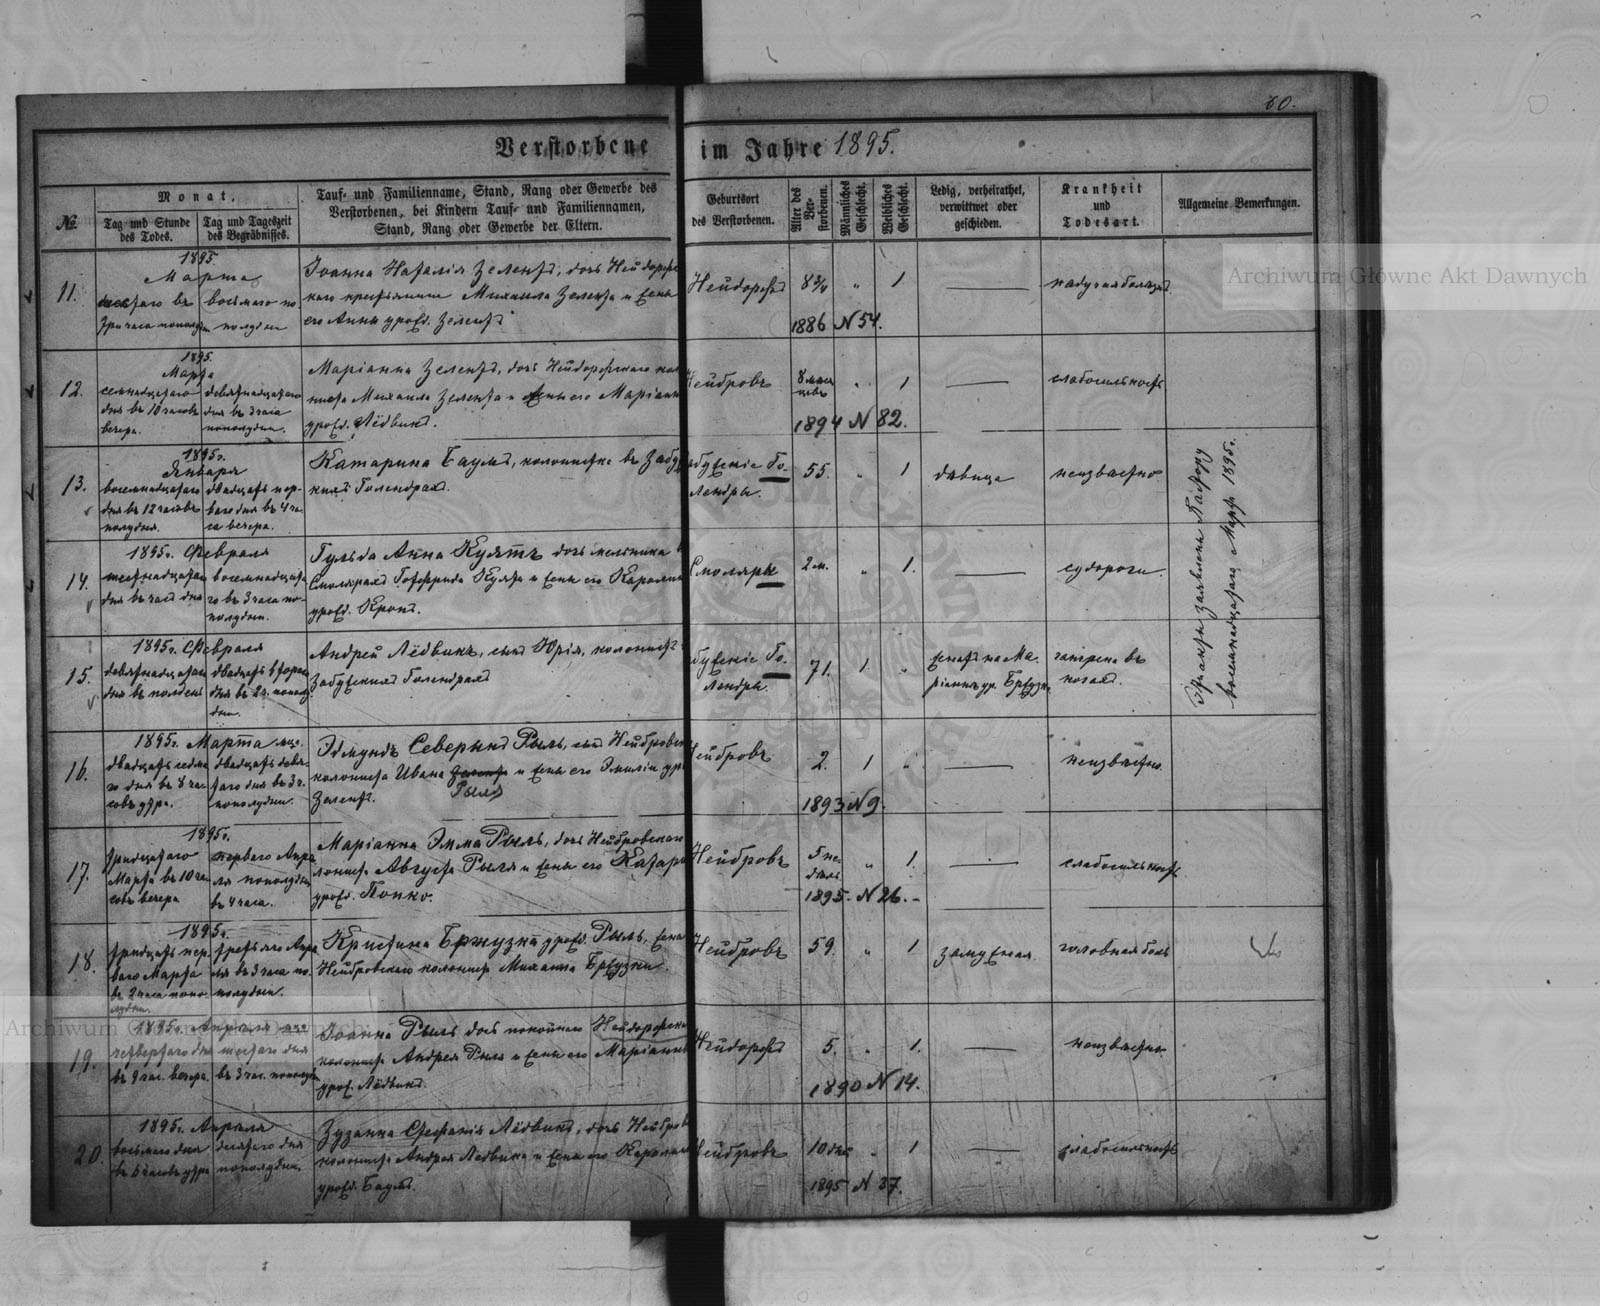 60.
Verstorbene im Jahre 1895.
No.
Monat.
Tag und Stunde des Todes.
Tag und Tageszeit des Begräbnisses.
Tauf- und Familienname, Stand, Rang oder Gewerbe des
Verstorbenen, bei Kindern Tauf- und Familiennamen,
Stand, Rang oder Gewerbe der Eltern.
Geburtsort
des Verstorbenen.
Alter des Ver-
storbenen.
Männliches
Geschlecht.
Weibliches
Geschlecht.
Ledig, verheirathet,
verwittwet oder
geschieden.
Krankheit
und
Todesart.
Allgemeine Bemerkungen.
11.
1895
Марта
восьмаго по
полудни
Іоанна Наталія Зелентъ, дочь
Михаила Зелента и
его Анны урожд. Зелентъ
Нейдорфъ
8¾
"
1
1886 N 54.
12.
1895.
Марта
семнадцатаго
дня въ 10 часовъ
вечера.
девятнадцатаго
дня въ 3 часа
пополудни.
Маріанна Зелентъ, дочь Нейдорфскаго
Михаила Зелента и жены его Маріанны
урожд. Лёдвикъ.
Нейбровъ
"
1
слабосильность
1894 N 82.
13.
1895г.
Января
восемнадцатаго
дня въ 12 часовъ
полудня.
двадцать пер-
ваго дня въ 4 ча-
са вечера.
Катарина Баумъ, колонистка въ
Голендрахъ.
Го-
лендры.
55.
"
1
дѣвица
неизвѣстно
14.
1895г. Февраля
шестнадцатаго
восемнадцата-
го въ 3 часа по-
полудни.
Гульда Анна Кунтъ дочь мельника
Смолярахъ Готфрида и жены его Каролины
урожд. Кронъ.
Смоляры
2 м.
"
1.
судороги.
15.
1895г. Февраля
девятнадцатаго
дня въ полдень
двадцать втораго
дня въ 2 ч. пополу-
дни.
Андрей Лёдвикъ, сынъ Юрія, колонистъ
Забужскихъ Голендрахъ
Го-
лендры.
71.
1
"
женатъ на Ма-
ріаннѣ ур. Бржузка
гангрена въ
ногахъ.
восемнадцатаго Марта 1895г.
16.
1895г. Марта
двадцать седьма-
го дня въ 8 час
совъ утра.
двадцать девя-
таго дня въ 3 ч.
пополудни.
Эдмундъ Северынъ Рыль, сынъ Нейбровскаго
колониста Ивана Рыля и жены его Эмиліи ур.
Зелентъ.
Нейбровъ
2.
1
"
неизвѣстно
1893 N 9.
17.
1895г.
тридцатаго
Марта въ 10 ча-
совъ вечера
перваго Апрѣ-
ля пополудни
въ 4 часа.
Маріанна Эмма Рыль, дочь Нейбровскаго
лониста Августа Рыля и жены его Катарины
урожд. Попко.
Нейбровъ
5 не-
дѣль
"
1.
слабосильность
1895. N 26.
18.
1895г.
тридцать пер-
ваго Марта
въ 2 часа попо-
лудни.
третьяго Апрѣ-
ля въ 3 часа по-
полудни.
Кристина Бржузка урожд. Рыль, жена
Нейбровскаго колониста Михаила Бржузки.
Нейбровъ
59.
"
1
замужняя.
головная боль
19.
1895г. Апрѣля
четвертаго дня
въ 9 час. вечера.
шестаго дня
въ 3 час. пополудни
Іоанна Рыль дочь покойнаго Нейдорфскаго
колониста Андрея Рыля и жены его Маріанны
урожд. Лёдвикъ.
Нейдорфъ
5.
"
1.
неизвѣстно
1890 N 14.
20.
1895г. Апрѣля
восьмаго дня
въ 6 часовъ утра
десятаго дня
пополудни.
Зузанна Стефанія Лёдвикъ, дочь Нейбров
колониста Андрея Ледвика и жены его Каролины
урожд. Баумъ.
Нейбровъ
10 дне
"
1
слабосильность
1895 N 37.
Archiwum Główne Akt Dawnych
Archiwum Główne Akt Dawnych